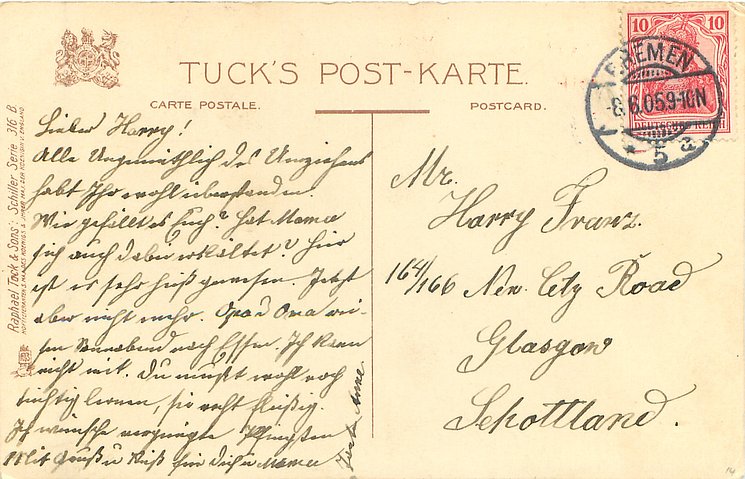 TUCK'S POST-KARTE.
CARTE POSTALE.
POSTCARD.
10 10
DEUTSCHES REICH
BREMEN
8.6.05 9-10N
* 5 a
Raphael Tuck & Sons: Schiller Serie 316 B.
Lieber Harry!
Alle Ungemüthlich des Umziehens
habt Ihr wohl überstanden.
Wie gefällt es Euch? Hat Mama
sich auch dabei erkältet? Hier
ist es sehr heiß gewesen. Jetzt
aber nicht mehr. Opa & Oma rei-
sen Sonnabend nach Essen. Ich kann
nicht mit. Du mußt wohl noch
tüchtig lernen, sei recht fleißig.
Ich wünsche vergnügte Pfingsten
Mit Gruß u Kuß für Dich u Mama
Tante Anne.
Mr.
Harry Franz.
164/166 New City Road
Glasgow
Schottland.
14